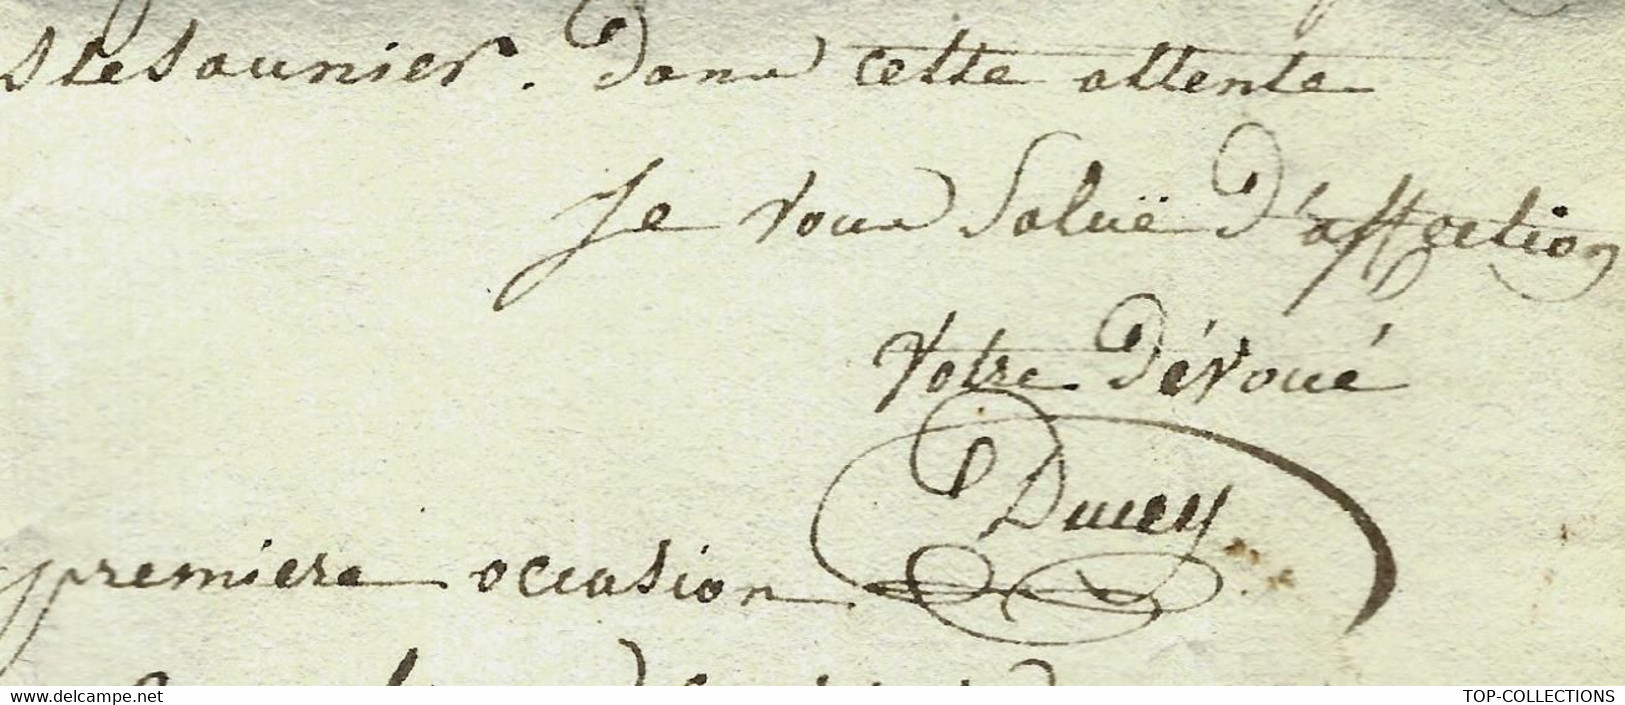 SteSaunier. Dans cette attente
Je vous Saluë D'affection
Votre Dévoué
Ducey
premiere occasion
www.delcampe.net
TOP-COLLECTIONS